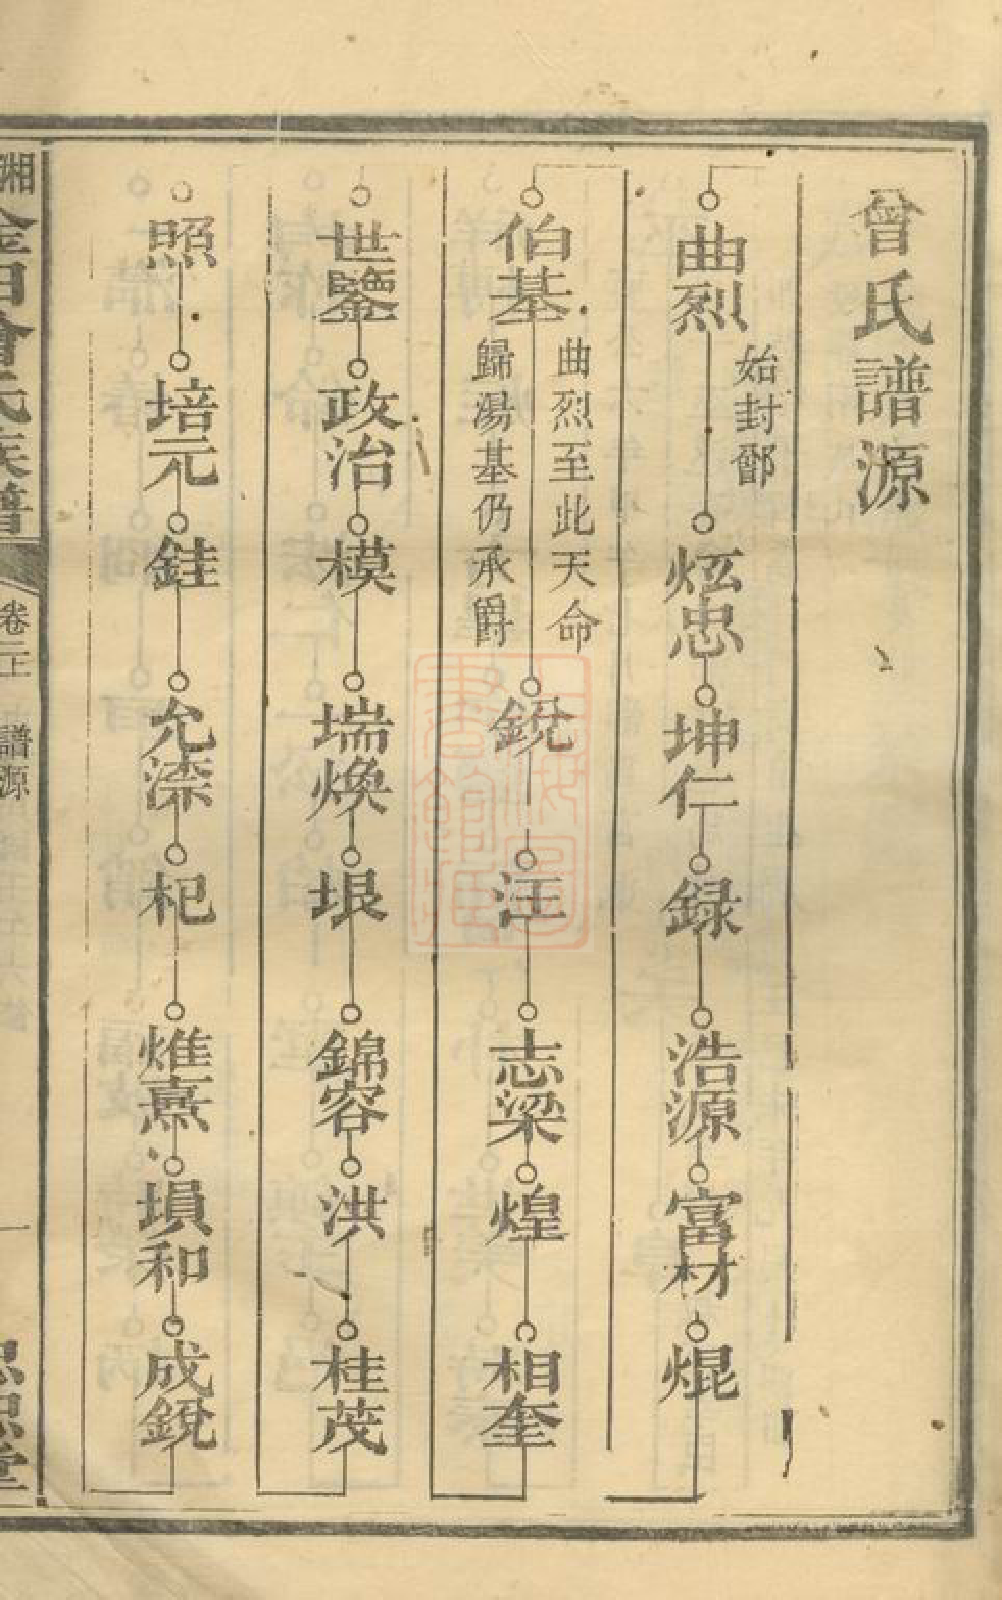 曾氏譜源
曲烈 始封鄫 炫忠 坤仁 録 浩源 富材 焜
伯基 曲烈至此天命
歸湯基仍承爵 銳 汪 志梁 煌 相奎
世鑒 政治 模 瑞煥 垠 錦容 洪 桂茂
照 培元 銈 允溁 杞 熊熹 塤和 成銳
湘 金田曾氏族譜 卷二上 譜源 一 思堂